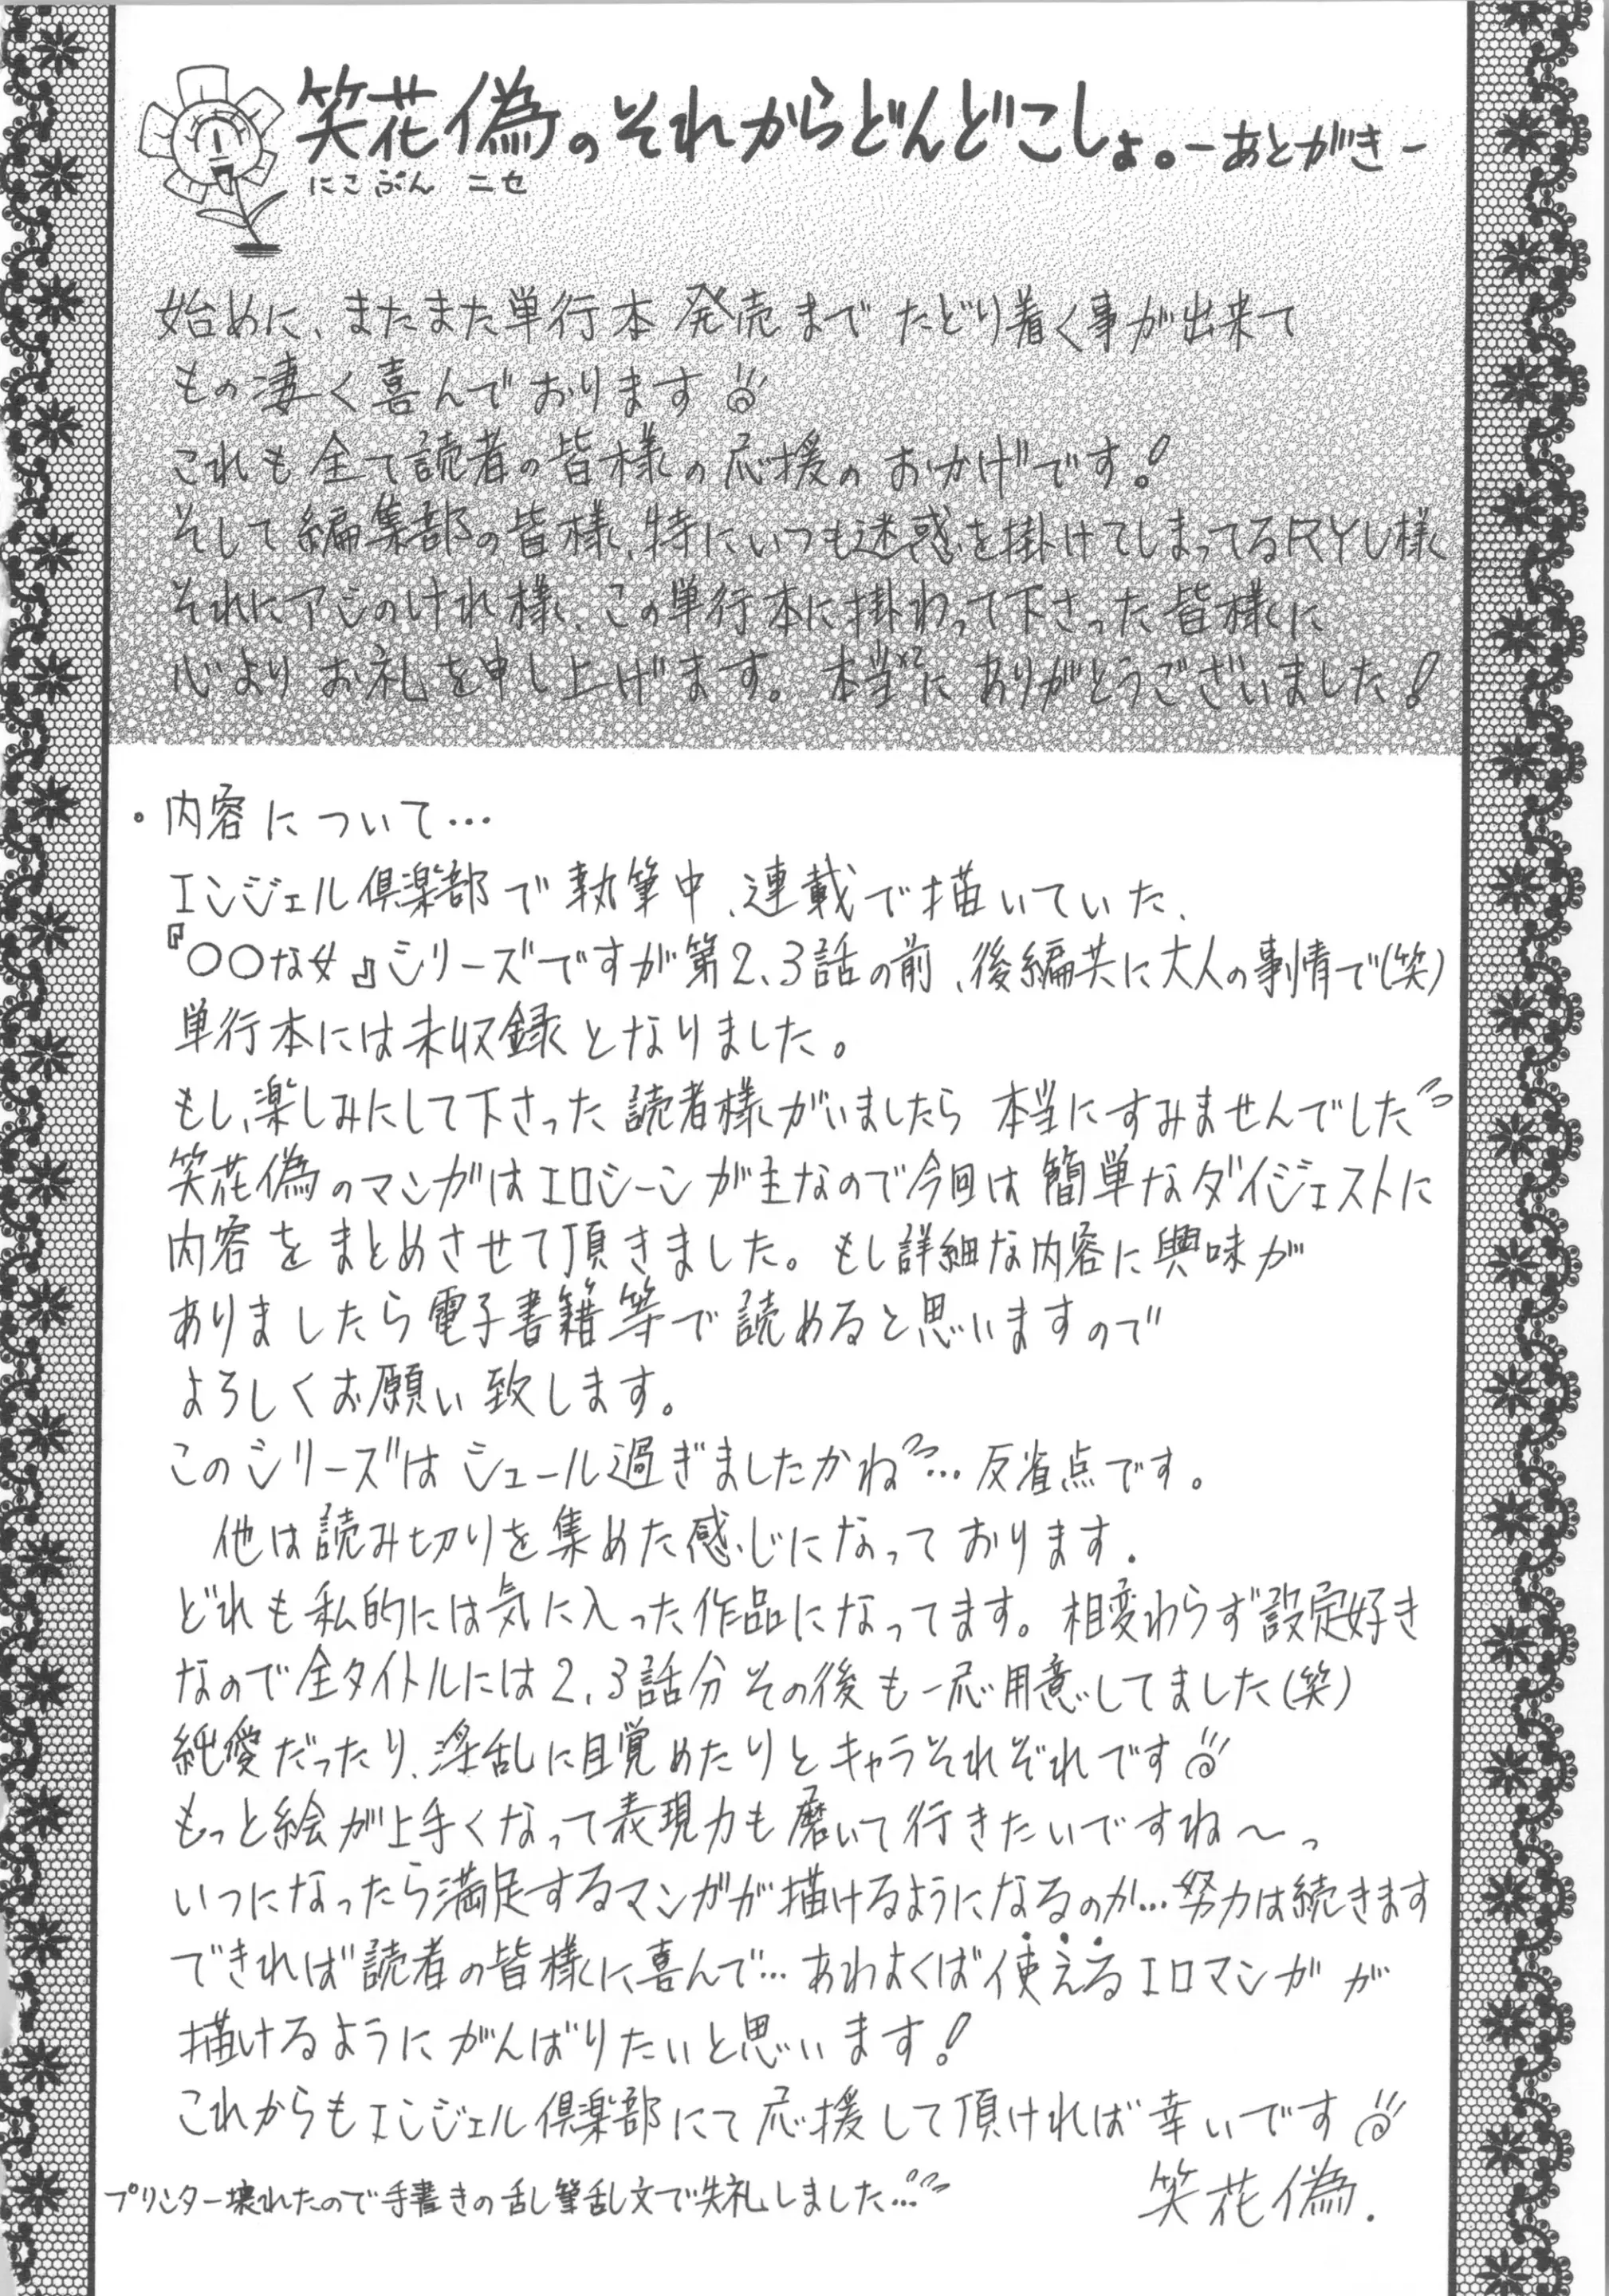 笑花偽のそれからどんどこしょ。-あとがき-
にこぷん ニセ
始めに、またまた単行本発売までたどり着く事が出来て
もの凄く喜んでおります
これも全て読者の皆様の応援のおかげです!
そして編集部の皆様、特にいつも迷惑を掛けてしまってるRYU様
それにアジのけれ様、この単行本に掛わって下さった皆様に
心よりお礼を申し上げます。本当×2にありがとうございました!
・内容について…
エンジェル倶楽部で執筆中、連載で描いていた、
『〇〇な女』シリーズですが第2、3話の前、後編共に大人の事情で(笑)
単行本には未収録となりました。
もし、楽しみにして下さった読者様がいましたら本当にすみませんでした
笑花偽のマンガはエロシーンが主なので今回は簡単なダイジェストに
内容をまとめさせて頂きました。もし詳細な内容に興味が
ありましたら電子書籍等で読めると思いますので
よろしくお願い致します。
このシリーズはシュール過ぎましたかね…反省点です。
他は読み切りを集めた感じになっております.
どれも私的には気に入った作品になってます。相変わらず設定好き
なので全タイトルには2、3話分その後も一応用意してました(笑)
純愛だったり、淫乱に目覚めたりとキャラそれぞれです
もっと絵が上手くなって表現力も磨いて行きたいですね〜っ
いつになったら満足するマンガが描けるようになるのか…努力は続きます
できれば読者の皆様に喜んで…あわよくば使えるエロマンガが
描けるようにがんばりたいと思います!
これからもエンジェル倶楽部にて応援して頂ければ幸いです
プリンター壊れたので手書きの乱筆乱文で失礼しました…
笑花偽.